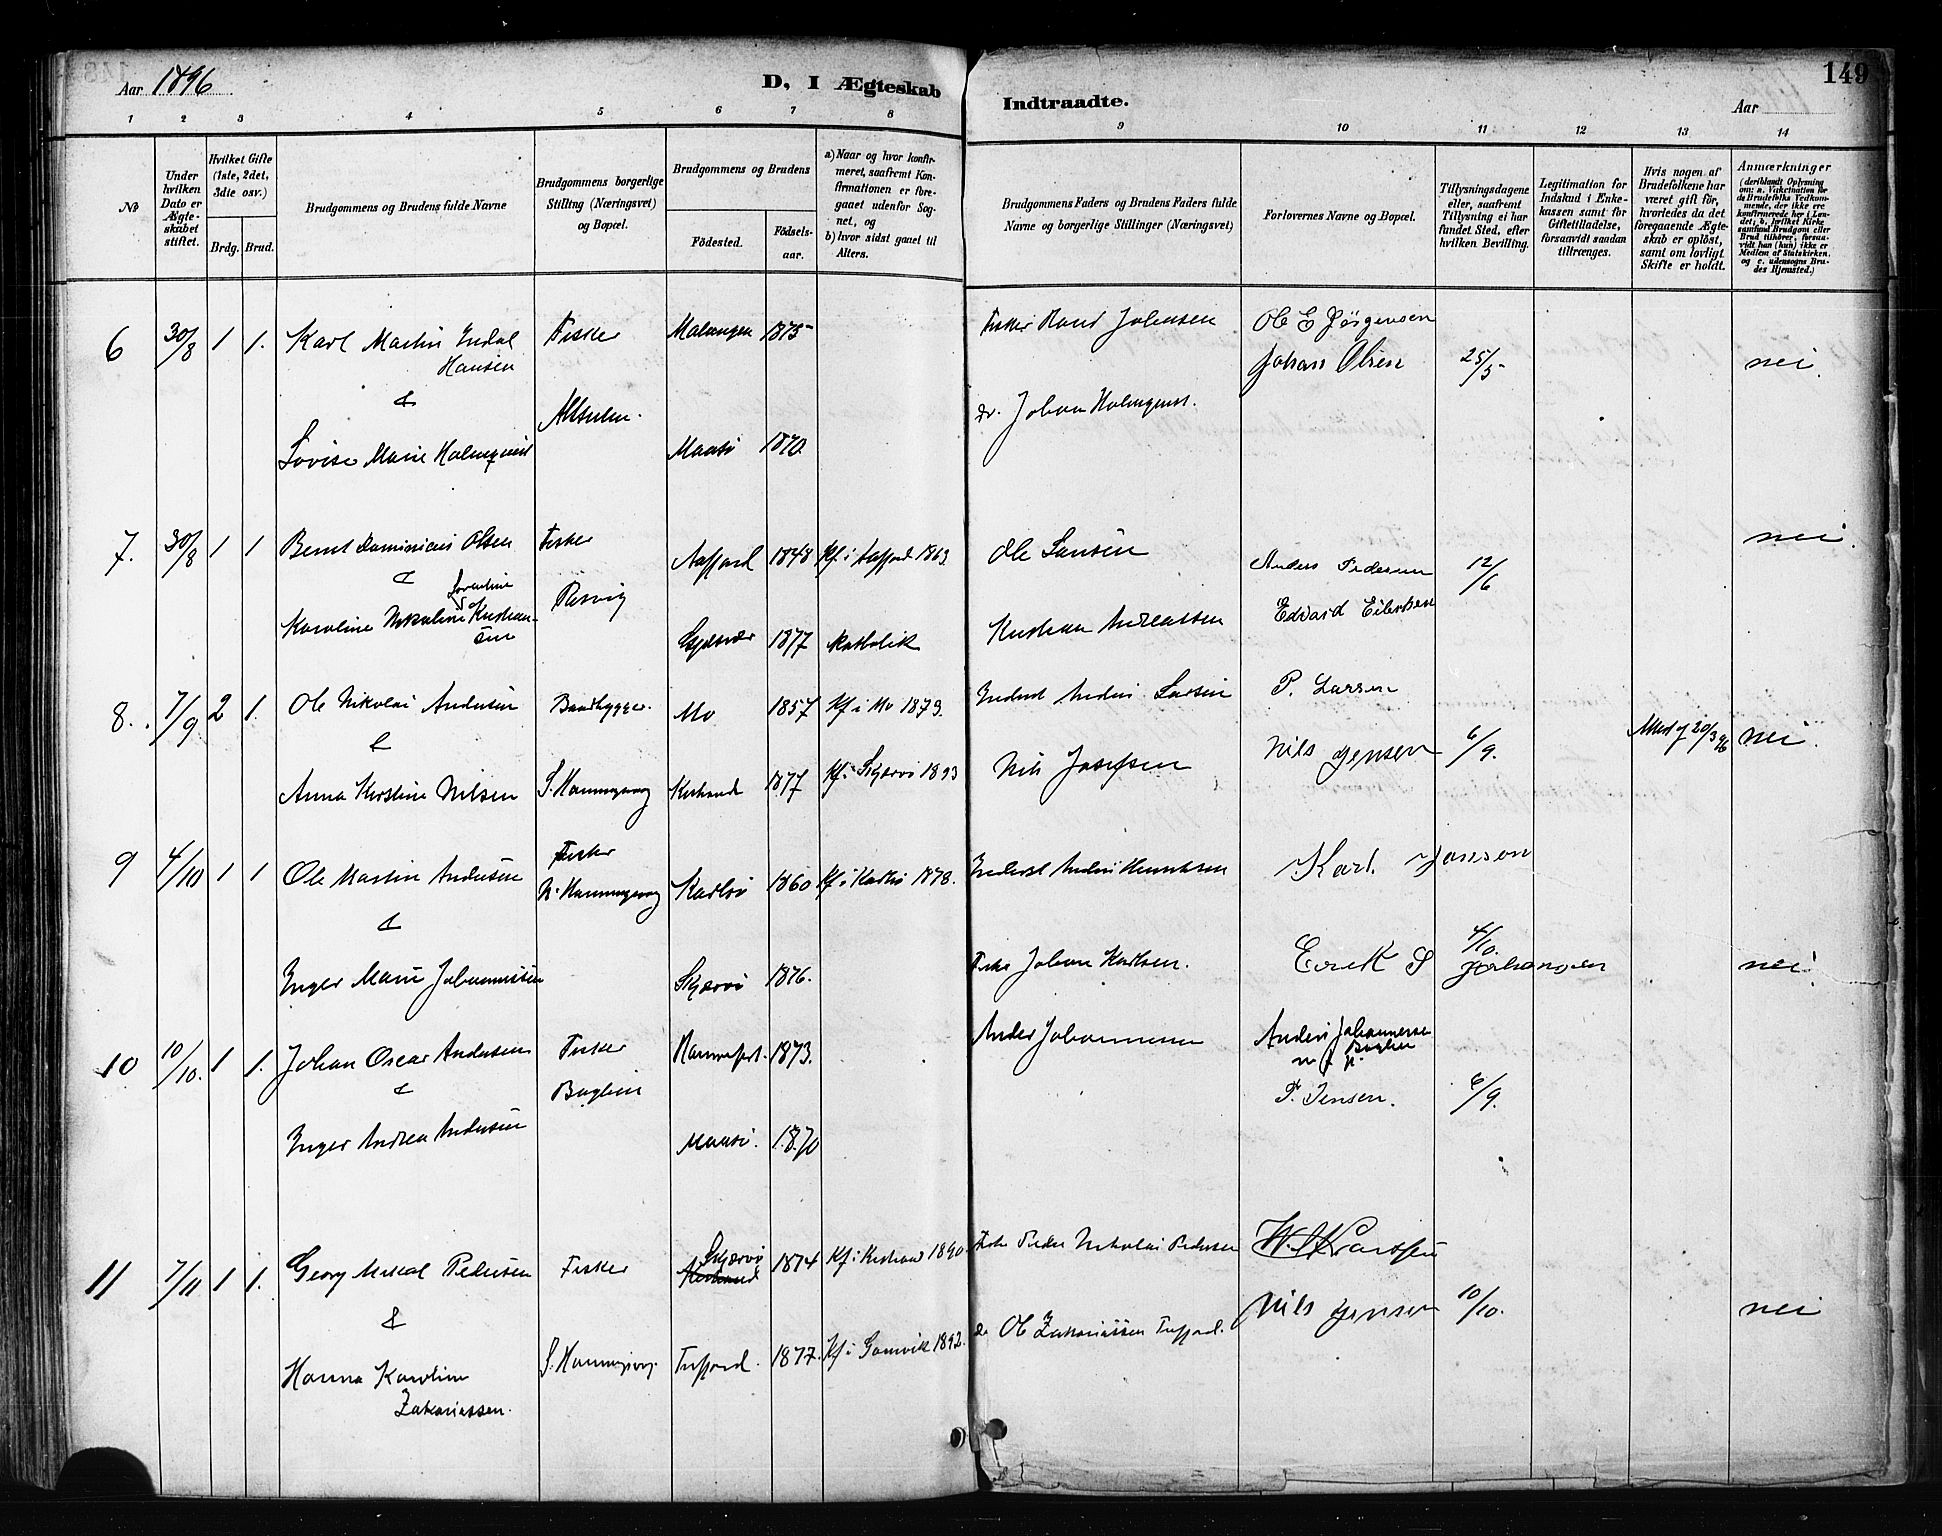 Aar 1896
D, I Ægteskab
Indtraadte.
149
Aar
1 2 3 4 5 6 7 8 9 10 11 12 13 14
No
Under hvilken Dato er Ægteskabet stiftet.
Hvilket Gifte (1ste, 2det, 3die osv.)
Brdg. Brud.
Brudgommens og Brudens fulde Navne
Brudgommens borgerlige Stilling (Næringsvei) og Bopæl.
Brudgommens og Brudens
Födested.
Födselsaar.
a) Naar og hvor konfirmeret, saafremt Konfirmationen er foregaaet udenfor Sognet, og
b) hvor sidst gaaet til Alters.
Brudgommens Faders og Brudens Faders fulde Navne og borgerlige Stillinger (Næringsvei)
Forlovernes Navne og Bopæl.
Tillysningsdagene eller, saafremt Tillysning ei har fundet Sted, efter hvilken Bevilling.
Legitimation for Indskud i Enkekassen samt for Giftetilladelse, forsaavidt saadan tiltrænges.
Hvis nogen af Brudefolkene har været gift för, hvorledes da det foregaaende Ægteskab er oplöst, samt om lovligt Skifte er holdt.
Anmærkninger
(deriblandt Oplysning om: a. Vakcination for de Brudefolks Vedkommende, der ikke ere konfirmerede her i Landet; b. hvilket Kirkesamfund Brudgom eller Brud tilhörer, forsaavidt han (hun) ikke er Medlem af Statskirken, og c. udensogns Brudes Hjemsted.)
6 30/8 1 1. Karl Martin Indal Hansen Fisker Malangen 1875
Johansen Ole E Jörgensen
Johan Olsen 25/5 nei.
&
do. Johan Holmquist.
Lovise Marie Holmquist Maasö 1870.
7. 30/8 1 1 Bernt Dominicus Olsen Fisker Aafjord 1848 Kf. i Aafjord 1863
Ole Larsen nei.
Anders Pedersen 12/6
&
Karoline Nikoline Kristiansen 1877 Katholik
Kristian Andreassen Edvard Eilertsen
8. 7/9 2 1. Ole Nikolai Andersen Baadbygger. Mo 1857 Kf i Mo 1879.
Inderst Anders Larsen P. Larsen
&
Nils Jensen 6/9. 20/3 96 nei.
Anna Kirstine Nilsen S. Honningsvaag Kistrand 1877 Kf i Skjærvö 1893
Nils Josefsen
9 4/10 1 1 Ole Martin Andersen Fisker
N. Honningsvaag Karlsö 1860 Kf. i Karlsö 1878.
Inderst Anders Henriksen Karl. Jonson
&
4/10.
Inger Marie Johannessen Skjærvö 1876.
Fisker Johan Karlsen. Erek S Johansen nei.
10 10/10. 1 1. Johan Oscar Andersen Fisker Hammerfest. 1873.
Anders Johannessen Anders Johannessen
m. f. p.
&
P. Jensen. 6/9.
Inger Andrea Andersen Maasö. 1870
11 7/11 1 1. Georg Mikal Pedersen Fisker Skjærvö
Kistrand 1874 Kf. i Kistrand 1890.
Fisker Peder Nikolai Pedersen
&
Nils Jensen 10/10. nei
Hanna Karoline Zakariassen. S. Honningsvaag. Tufjord. 1877. Kf i Gamvik 1892.
do Ole Zakariassen Tufjord.